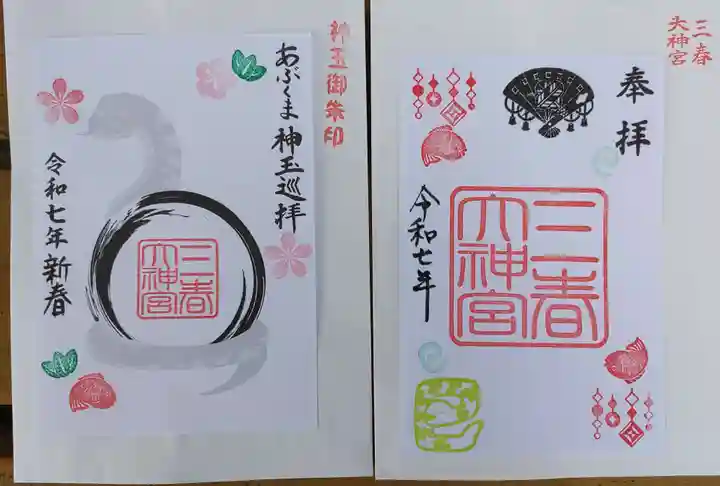 神玉御朱印
あぶくま神玉巡拝
三春
大神宮
令和七年 新春
三春
大神宮
奉拝
三春
大神宮
令和七年